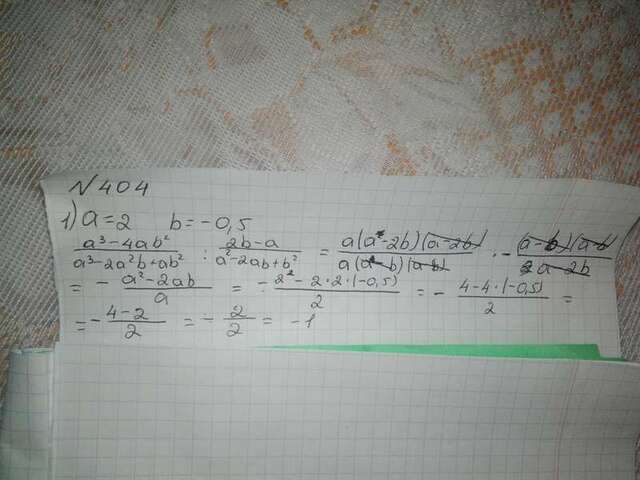 N404
1) a=2 b=-0,5
(a³-4ab²)/(a³-2a²b+ab²) : (2b-a)/(a²-2ab+b²) = (a(a-2b)(a-2b))/(a(a-b)(a-b)) · -((a-b)(a-b))/(a-2b)
= - (a²-2ab)/a = - (2²-2·2·(-0,5))/2 = - (4-4·(-0,5))/2 =
= - (4-2)/2 = - 2/2 = -1